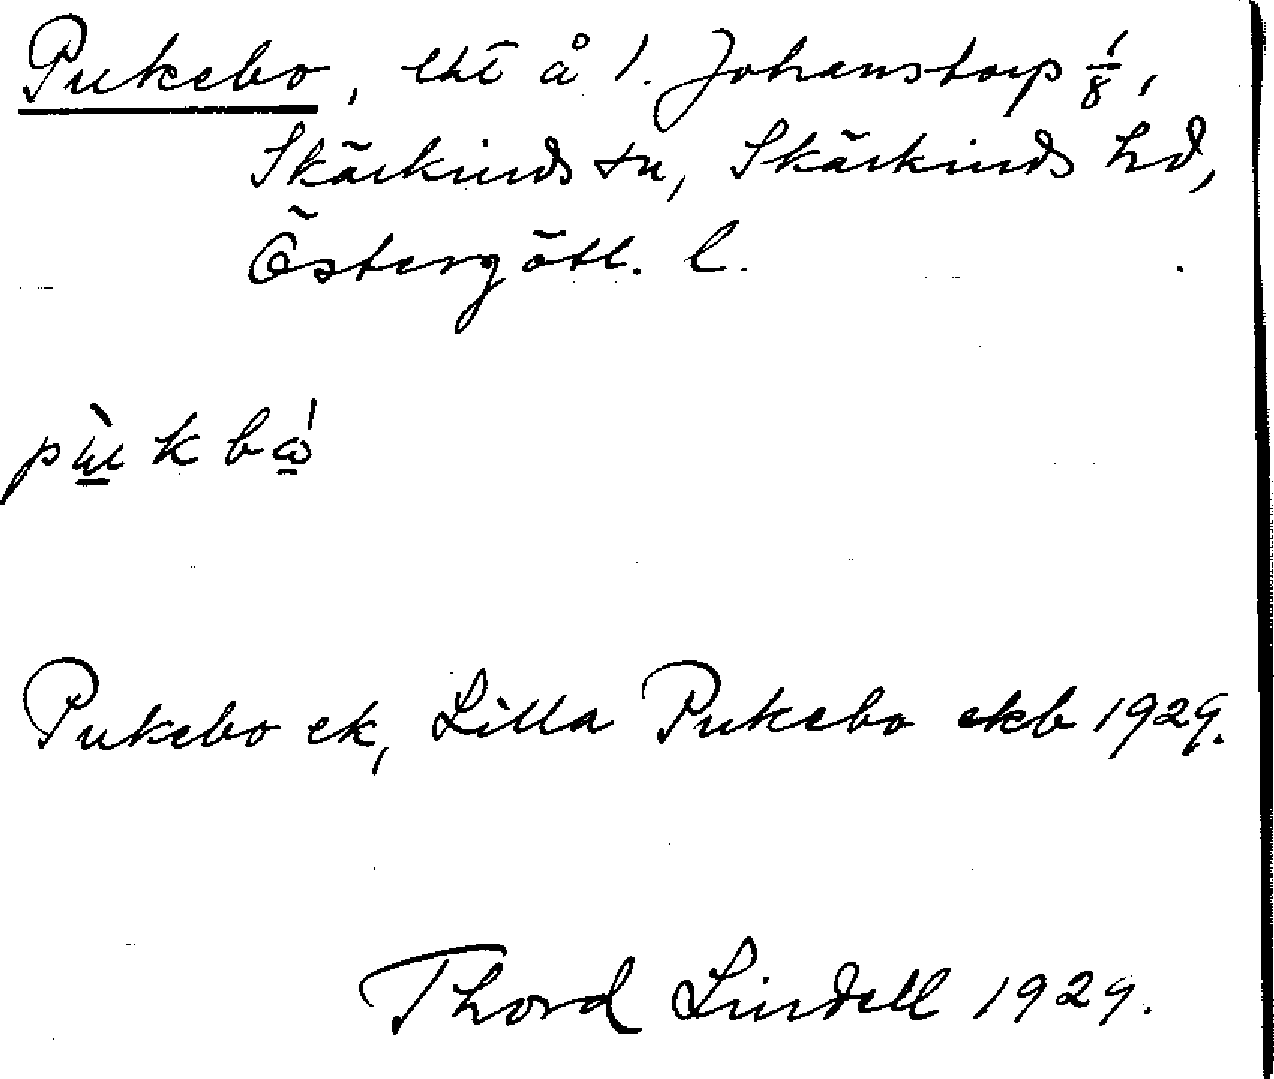 Pukebo, lht å 1. Johanstorp 1/8,
Skärkinds sn, Skärkinds hd,
Östergötl. l.
pùkbó
Pukebo ek, Lilla Pukebo ekb 1929.
Thord Lindell 1929.